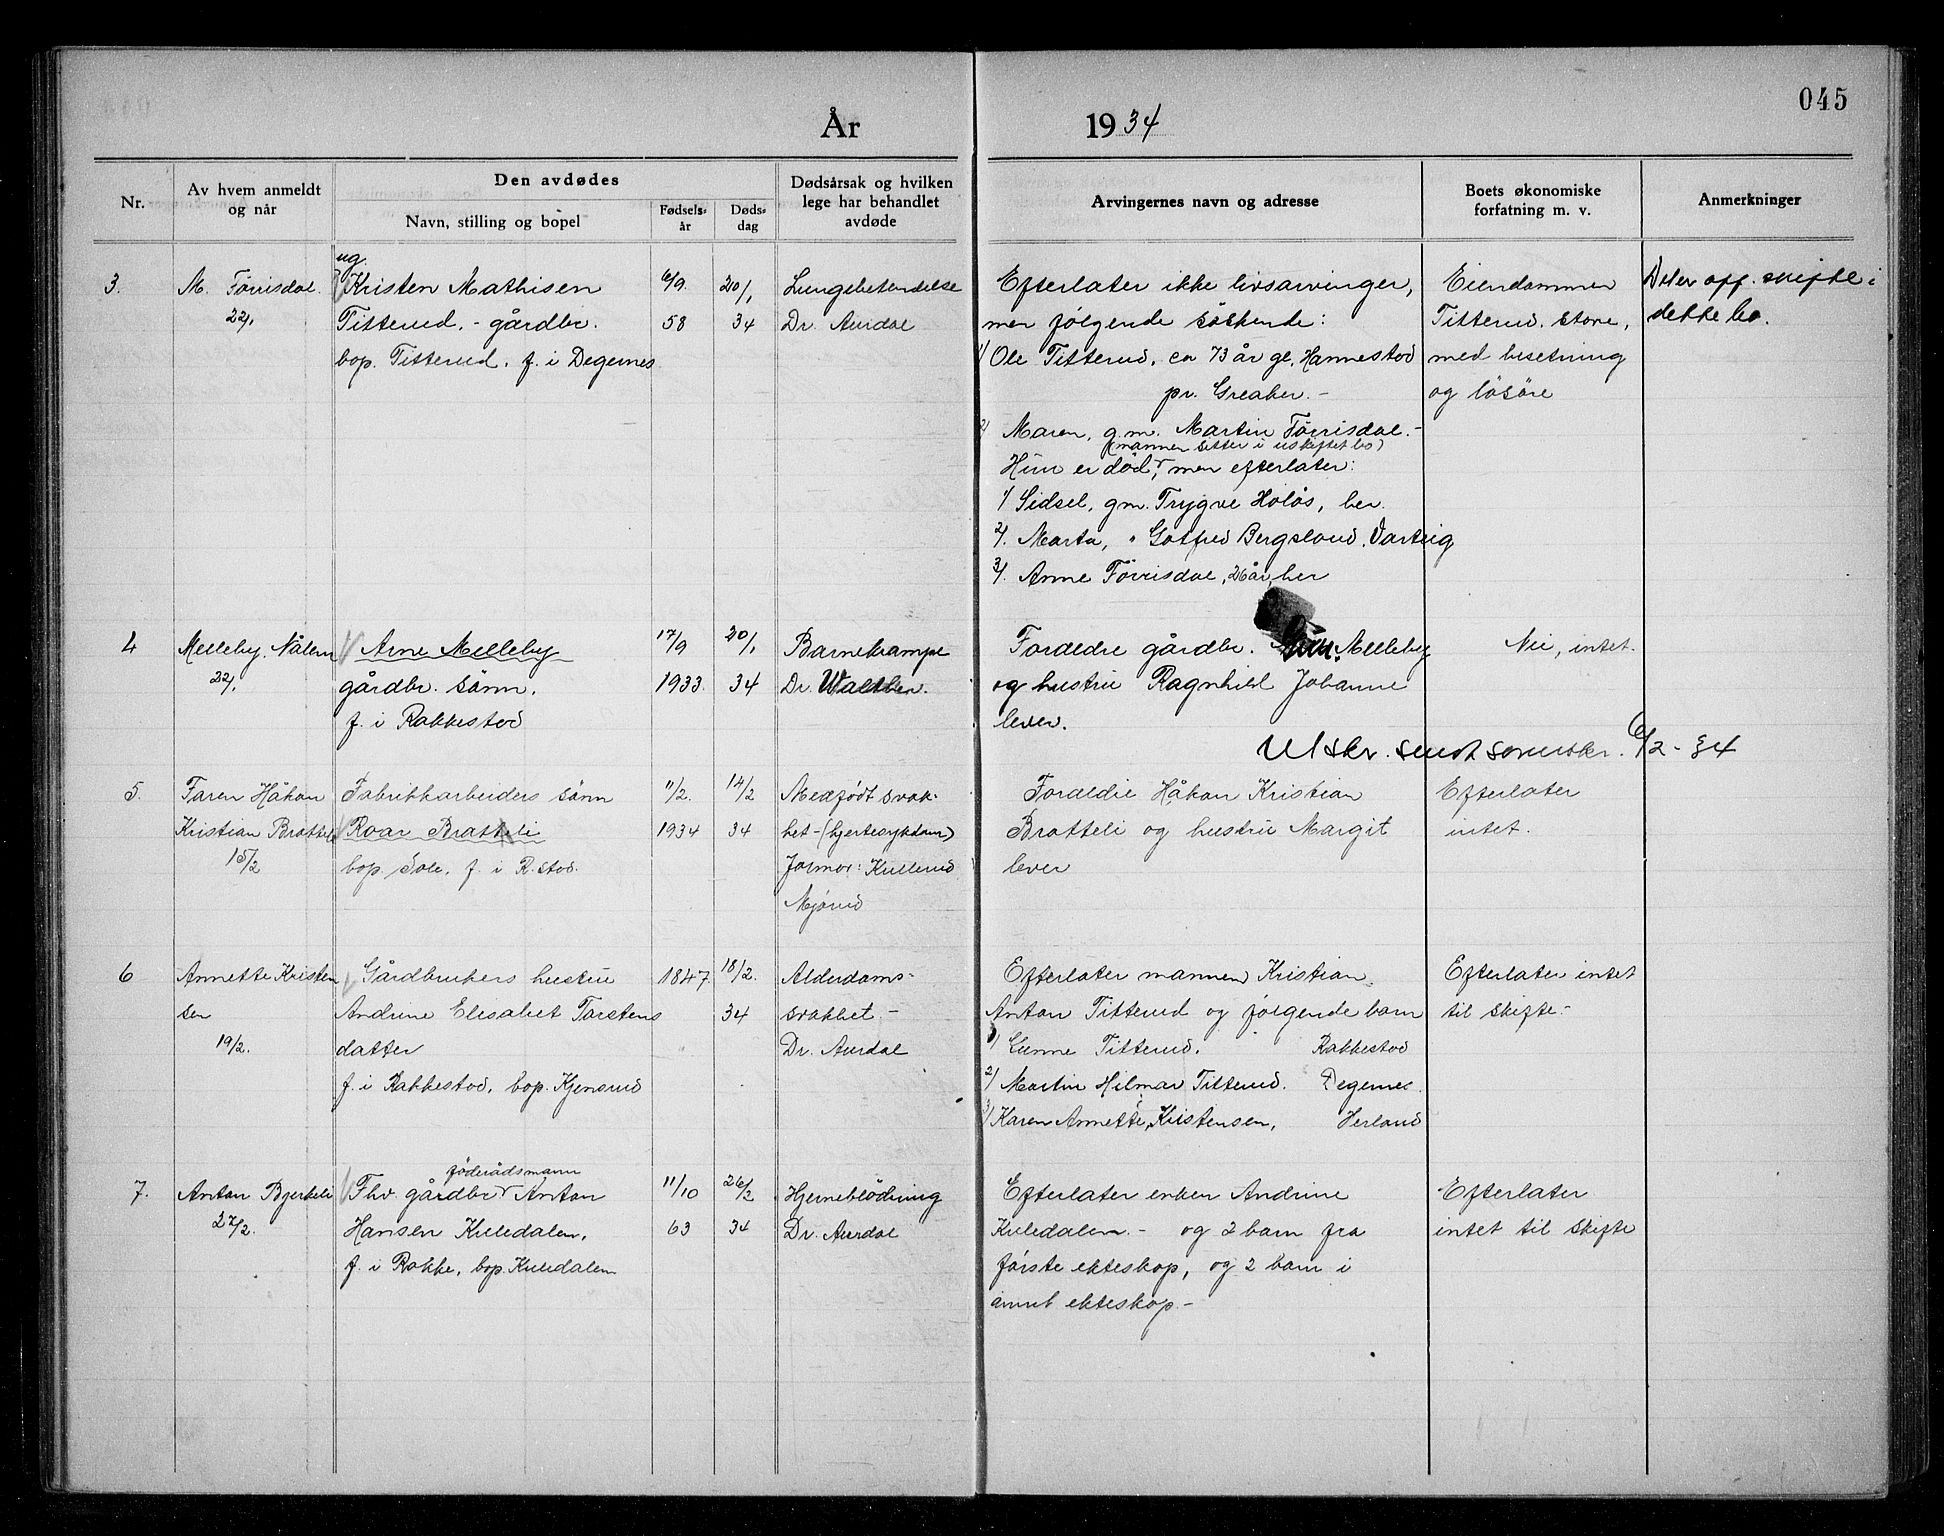 045
År 1934
Nr.
Av hvem anmeldt og når
Den avdødes
Navn, stilling og bopel
Fødsels-år
Døds-dag
Dødsårsak og hvilken lege har behandlet avdøde
Arvingernes navn og adresse
Boets økonomiske forfatning m. v.
Anmerkninger
3.
M. Førrisdal.
22/1
ug.
Kristen Mathisen
Titterud. - gårdbr.
bop. Titterud. f. i Degernes
6/9.
58
20/1
34
Lungebetendelse
Dr. Aurdal
Efterlater ikke livsarvinger,
men følgende søskende:
1/ Ole Titterud, ca 73 år gl. Hannestad
pr. Greaker. -
2/ Maren, g.m. Martin Førrisdal. -
(mannen sitter i uskiftet bo)
Hun er død, men efterlater:
1/ Sidsel, gm. Trygve Holøs, her.
2/. Marta, " Gotfred Bergsland. Varteig
3/. Anne Førrisdal, 26 år, her
Eiendommen
Titterud. store,
med besetning
og løsøre
Det er off. skifte i
dette bo.
4
Melleby. Nålem
22/1
Arne Melleby
gårdbr. sønn.
f. i Rakkestad
17/9
1933.
20/1
34
Barnekrampe
Dr. Walther.
Foreldre gårdbr. Melleby
og hustru Ragnhild Johanne
lever.
Nei, intet.
Utskr. sendt sorenskr. 6/2 - 34
5.
Faren Håkon
Kristian Bratteli
15/2
Fabrikkarbeiders sønn
Roar Bratteli
bop. Sole. f. i R.stad.
11/2.
1934
14/2
34
Medfødt svak-
het - (hjertesykdom)
Jormor: Kullerud
Mjørud
Foreldre Håkon Kristian
Bratteli og hustru Margit
lever
Efterlater
intet.
6
Annette Kristen
sen
19/2.
Gårdbrukers hustru
Andrine Elisabet Torstens
datter
f. i Rakkestad, bop. Kjensrud
1847.
18/2.
34
Alderdoms-
svakhet -
Dr. Aurdal
Efterlater mannen Kristian
Anton Titterud og følgende barn
1/ Gunne Titterud. Rakkestad
2/ Martin Hilmar Titterud. Degernes.
3/ Karen Annette Kristensen, Herland
Efterlater intet
til skifte -
7.
Anton Bjerkeli
27/2.
føderådsmann
Fhv. gårdbr Anton
Hansen Kuledalen,
f. i Rakke, bop. Kuledalen
11/10
63
26/2
34
Hjerneblødning
Dr. Aurdal
Efterlater enken Andrine
Kuledalen. - og 2 barn fra
første ekteskap, og 2 barn i
annet ekteskap. -
Efterlater
intet til skifte